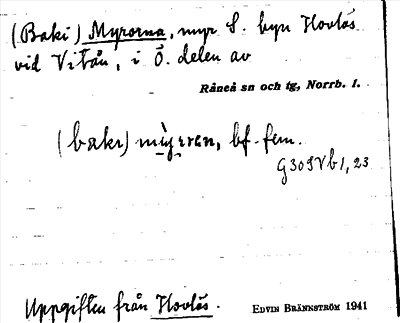 (Baki) Myrorna, myr S. byn Hovlös
vid Vitån, i Ö. delen av
Råneå sn och tg, Norrb. l.
(bakı) mỳrren, bf. fem.
G309Vb1,23
Uppgiften från Hovlös.
EDVIN BRÄNNSTRÖM 1941